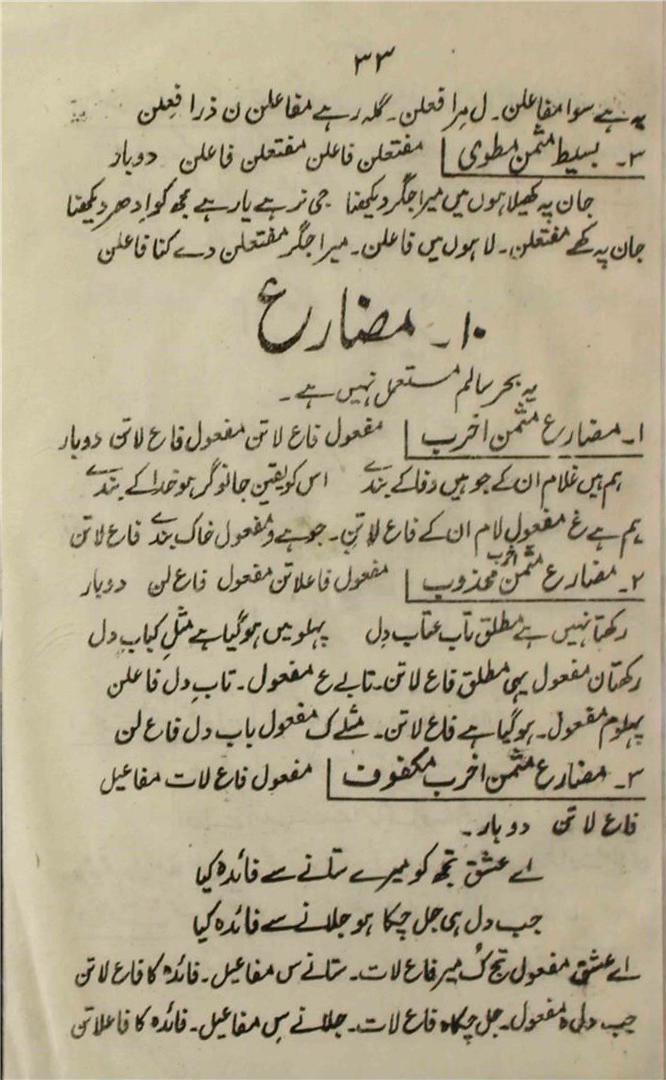 ۳۳
یہ ہے سوا مفاعلن۔ ل مرا فعلن۔ گلہ رہے مفاعلن ن ذرا فعِلن
۳۔ بسیط مثمن مطوی مفتعلن فاعلن مفتعلن فاعلن دوبار
جان پہ کھیلا ہوں میں میرا جگر دیکھنا جی نہ رہے یا رہے مجھ کو ادھر دیکھنا
جان پہ کھے مفتعلن۔ لا ہوں میں فاعلن۔ میرا جگر مفتعلن دے کنا فاعلن
۱۰۔ مضارع
یہ بحر سالم مستعمل نہیں ہے۔
۱۔ مضارع مثمن اخرب مفعول فاع لاتن مفعول فاع لاتن دوبار
ہم ہیں غلام ان کے جو ہیں وفا کے بندے اس کو یقین جانو گر ہو خدا کے بندے
ہم ہے غ مفعول لام ان کے فاع لاتن۔ جو ہے و مفعول فاک بندے فاع لاتن
۲۔ مضارع مثمن اخرب محذوب مفعول فاعلاتن مفعول فاع لن دوبار
رکھتا نہیں ہے مطلق تاب عتاب دل پہلو میں ہو گیا ہے مثل کباب دل
رکھتان مفعول ہی مطلق فاع لاتن۔ تابے ع مفعول۔ تاب دل فاعلن
پہلوم مفعول۔ ہو گیا ہے فاع لاتن۔ مثلے ک مفعول باب دل فاع لن
۳۔ مضارع مثمن اخرب مکفوف مفعول فاع لات مفاعیل
فاع لاتن دوبار۔
اے عشق تجھ کو میرے ستانے سے فائدہ کیا
جب دل ہی جل چکا ہو جلانے سے فائدہ کیا
اے عشق مفعول تج ک میر فاع لات۔ ستانے س مفاعیل۔ فائدہ کا فاع لاتن
جب دل ہ مفعول۔ جل چکاہ فاع لات۔ جلانے س مفاعیل۔ فائدہ کا فاعلاتن